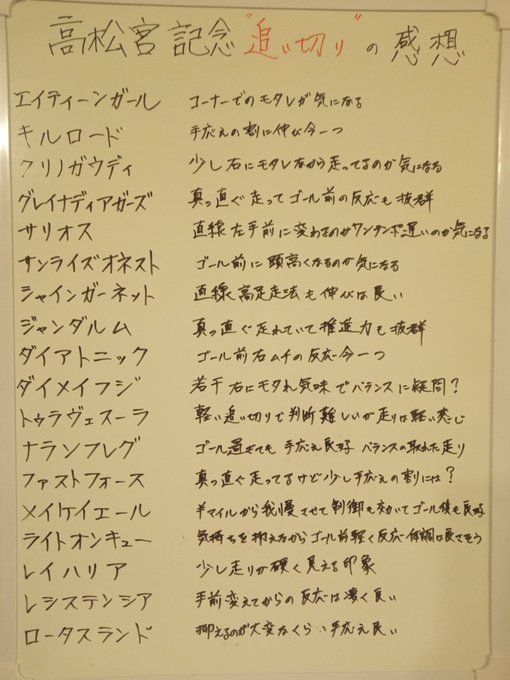 高松宮記念"追い切り"の感想
エイティーンガール コーナーでのモタレが気になる
キルロード 手応えの割に伸び今一つ
クリノガウディ 少し右にモタレながら走ってるのが気になる
グレイナディアガーズ 真っ直ぐ走ってゴール前の反応も抜群
サリオス 直線左手前に変わるのがワンテンポ遅いのが気になる
サンライズオネスト ゴール前に頭高くなるのが気になる
シャインガーネット 直線高足走法も伸びは良い
ジャンダルム 真っ直ぐ走れていて推進力も抜群
ダイアトニック ゴール前右ムチの反応今一つ
ダイメイフジ 若干右にモタれ気味でバランスに疑問?
トゥラヴェスーラ 軽い追い切りで判断難しいが走りは軽い感じ
ナランフレグ ゴール過ぎても手応え良好 バランスの取れた走り
ファストフォース 真っ直ぐ走ってるけど少し手応えの割には?
メイケイエール 半マイルから我慢させて制御も効いてゴール後も良好
ライトオンキュー 気持ちを抑えながらゴール前軽く反応 体調は良さそう
レイハリア 少し走りが硬く見える印象
レシステンシア 手前変えてからの反応は凄く良い
ロータスランド 抑えるのが大変なくらい手応え良い